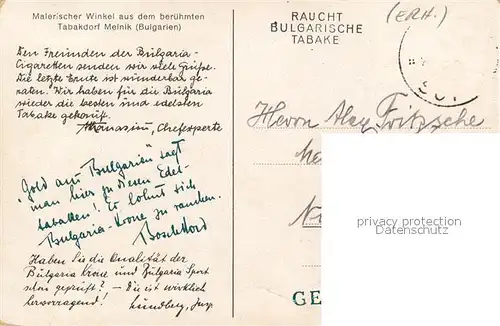 Malerischer Winkel aus dem berühmten
Tabakdorf Melnik (Bulgarien)
Den Freunden der Bulgaria-
Cigaretten senden wir viele Grüße.
Die letzte Ernte ist wunderbar ge-
raten. Wir haben für die Bulgaria
wieder die besten und edelsten
Tabake gekauft.
Athanasiu, Chefexperte
"Gold aus Bulgarien" sagt
man hier zu diesen Edel-
tabaken! Es lohnt sich
Bulgaria-Krone zu rauchen.
Haben Sie die Qualität der
Bulgaria Krone und Bulgaria Sport
schon geprüft? – Die ist wirklich
hervorragend! Lundberg, Insp.
RAUCHT
BULGARISCHE
TABAKE
(ERH.)
Herrn Alex Fritzsche
privacy protection
GE